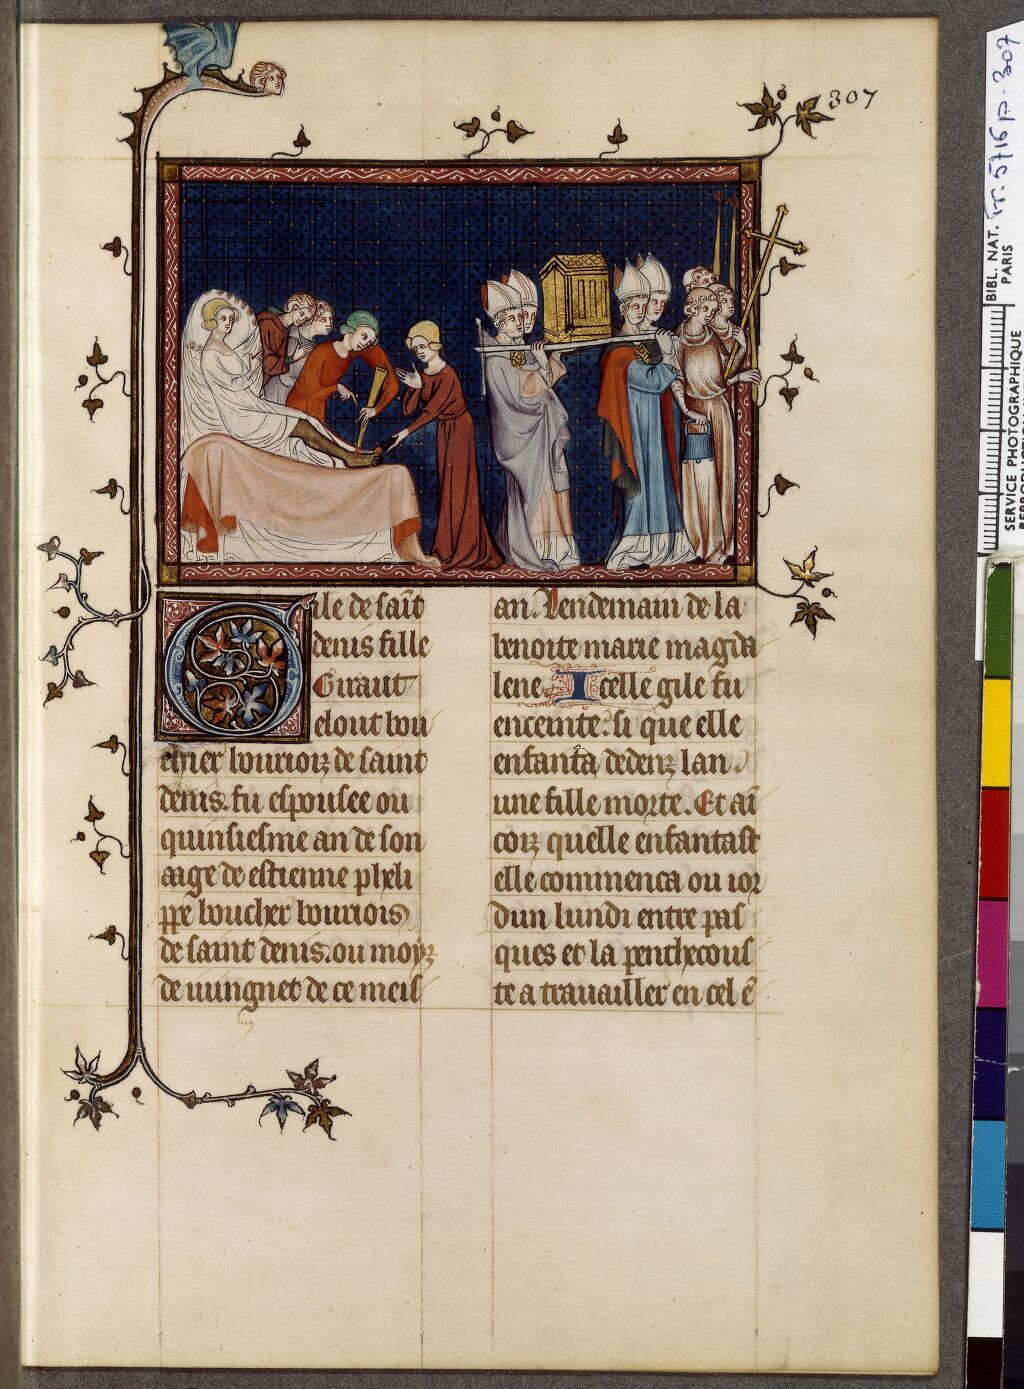 307
Gile de sait
denis fille
Giraut
elout bou
chier bourioiz de saint
denis. fu espousee ou
quinsiesme an de son
aage de estienne pheli
ppe boucher bouriois
de saint denis. ou moys
de uingnet de ce meis
an. Lendemain de la
benoite marie magda
lene. Icelle gile fu
enceinte. si que elle
enfanta dedenz lan
une fille morte. Et ai
coiz quelle enfantast
elle commenca ou ior
dun lundi entre pas
ques et la penthecous
te a trauailler en cel e
BIBL. NAT. fr. 5716 p. 307
PARIS
SERVICE PHOTOGRAPHIQUE